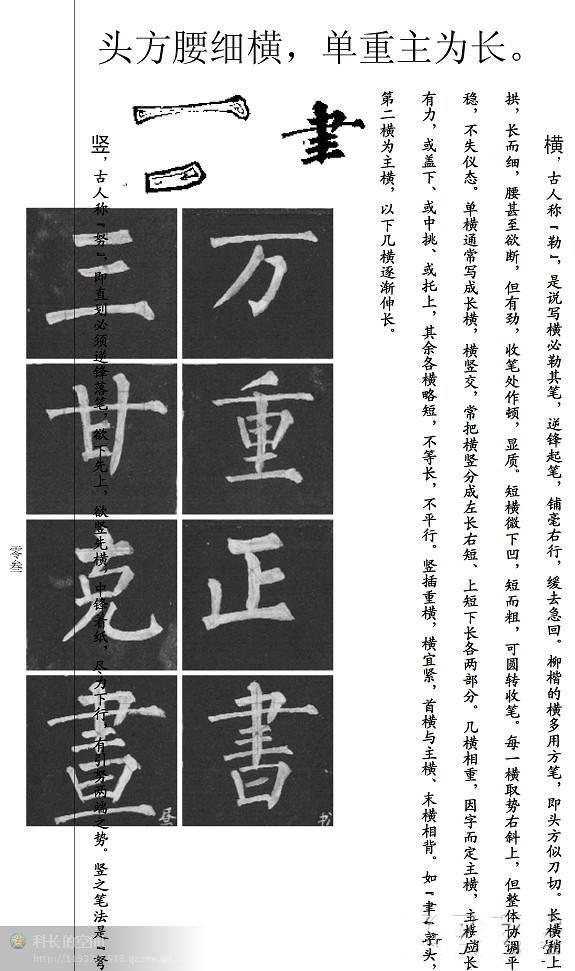 头方腰细横，单重主为长。
横，古人称『勒』，是说写横必勒其笔，逆锋起笔，铺毫右行，缓去急回。柳楷的横多用方笔，即头方似刀切。长横稍上
拱，长而细，腰甚至欲断，但有劲，收笔处作顿，显质。短横微下凹，短而粗，可圆转收笔。每一横取势右斜上，但整体协调平
稳，不失仪态。单横通常写成长横，横竖交，常把横竖分成左长右短、上短下长各两部分。几横相重，因字而定主横，主横应长
有力，或盖下、或中挑、或托上，其余各横略短，不等长，不平行。竖插重横，横宜紧，首横与主横、末横相背。如『聿』字头，
第二横为主横，以下几横逐渐伸长。
万
重
正
書
书
三
甘
克
晝
昼
竖，古人称『努』，即直划必须逆锋落笔，欲下先上，欲竖先横，中锋着纸，尽力下行，有引努两端之势。竖之笔法是『弩
零叁
科长的空间